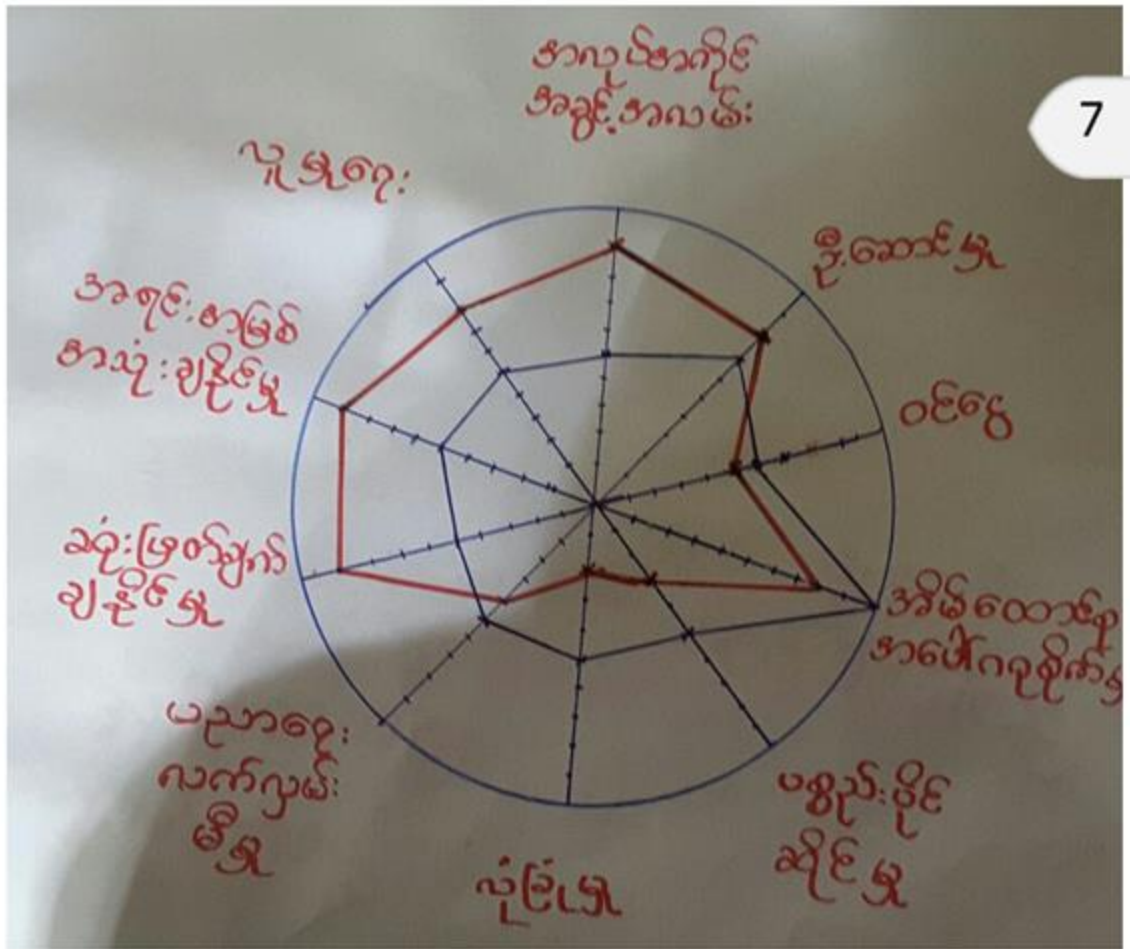 အလုပ်အကိုင်
အခွင့်အလမ်း
7
ဦးဆောင်မှု
ဝင်ငွေ
အိမ်ထောင်မှု
အပေါ်ဂရုစိုက်မှု
ပစ္စည်းပိုင်
ဆိုင်မှု
လုံခြုံမှု
ပညာရေး
လက်လှမ်း
မီမှု
ဆုံးဖြတ်ချက်
ချနိုင်မှု
အရင်းအမြစ်
အသုံးချနိုင်မှု
လူမှုရေး